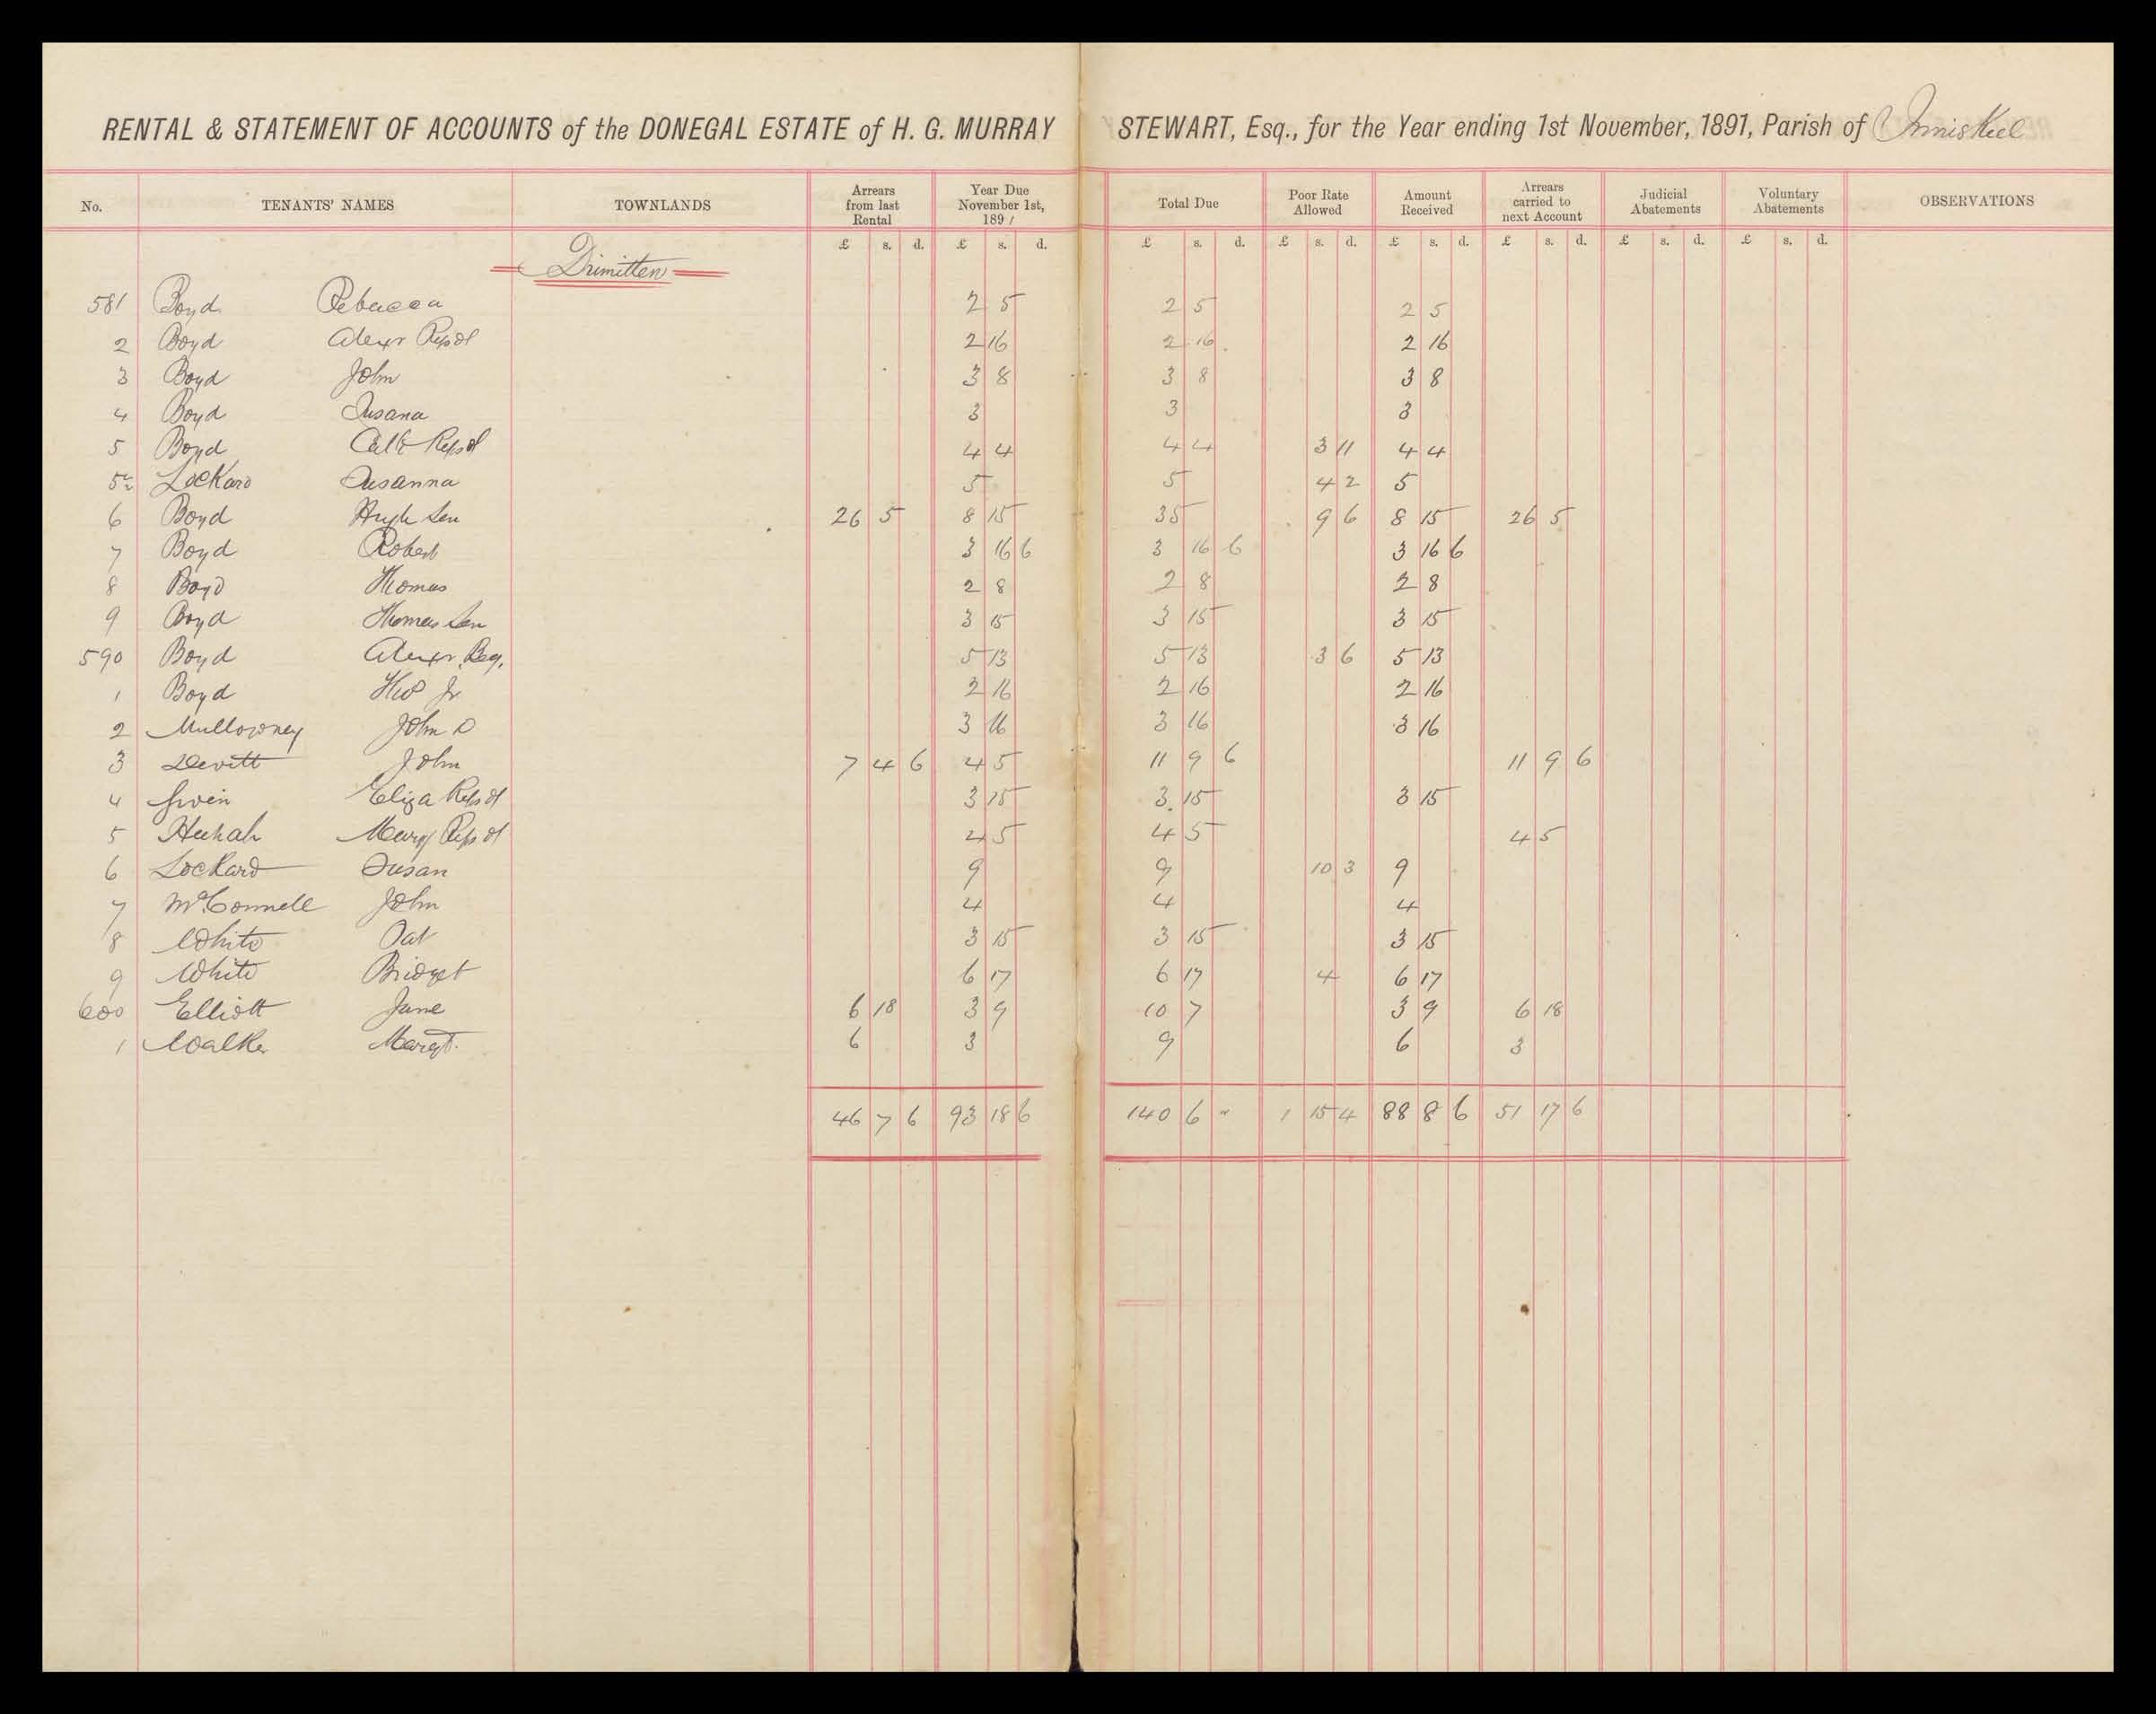 RENTAL & STATEMENT OF ACCOUNTS of the DONEGAL ESTATE of H. G. MURRAY STEWART, Esq., for the Year ending 1st November, 1891, Parish of Inniskeel
No. TENANTS' NAMES TOWNLANDS Arrears from last Rental Year Due November 1st, 1891 Total Due Poor Rate Allowed Amount Received Arrears carried to next Account Judicial Abatements Voluntary Abatements OBSERVATIONS
£ s. d. £ s. d. £ s. d. £ s. d. £ s. d. £ s. d. £ s. d. £ s. d.
Drimitten
581 Boyd Rebacca 2 5 2 5 2 5
2 Boyd Alexr Reps of 2 16 2 16 2 16
3 Boyd John 3 8 3 8 3 8
4 Boyd Susana 3 3 3
5 Boyd Reps of 4 4 4 4 3 11 4 4
5½ Lockard Susanna 5 5 4 2 5
6 Boyd Hugh Sen 26 5 8 15 35 9 6 8 15 26 5
7 Boyd Robert 3 16 6 3 16 6 3 16 6
8 Boyd Thomas 2 8 2 8 2 8
9 Boyd Thomas Sen 3 15 3 15 3 15
590 Boyd Alexr 5 13 5 13 3 6 5 13
1 Boyd Jr 2 16 2 16 2 16
2 Mullowney John D 3 16 3 16 3 16
3 Devitt John 7 4 6 4 5 11 9 6 11 9 6
4 Eliza Reps of 3 15 3 15 3 15
5 Mary Reps of 4 5 4 5 4 5
6 Lockard Susan 9 9 10 3 9
7 McConnell John 4 4 4
8 White Pat 3 15 3 15 3 15
9 White Bridget 6 17 6 17 4 6 17
600 Elliott Jane 6 18 3 9 10 7 3 9 6 18
1 Walker Margt. 6 3 9 6 3
46 7 6 93 18 6 140 6 " 1 15 4 88 8 6 51 17 6